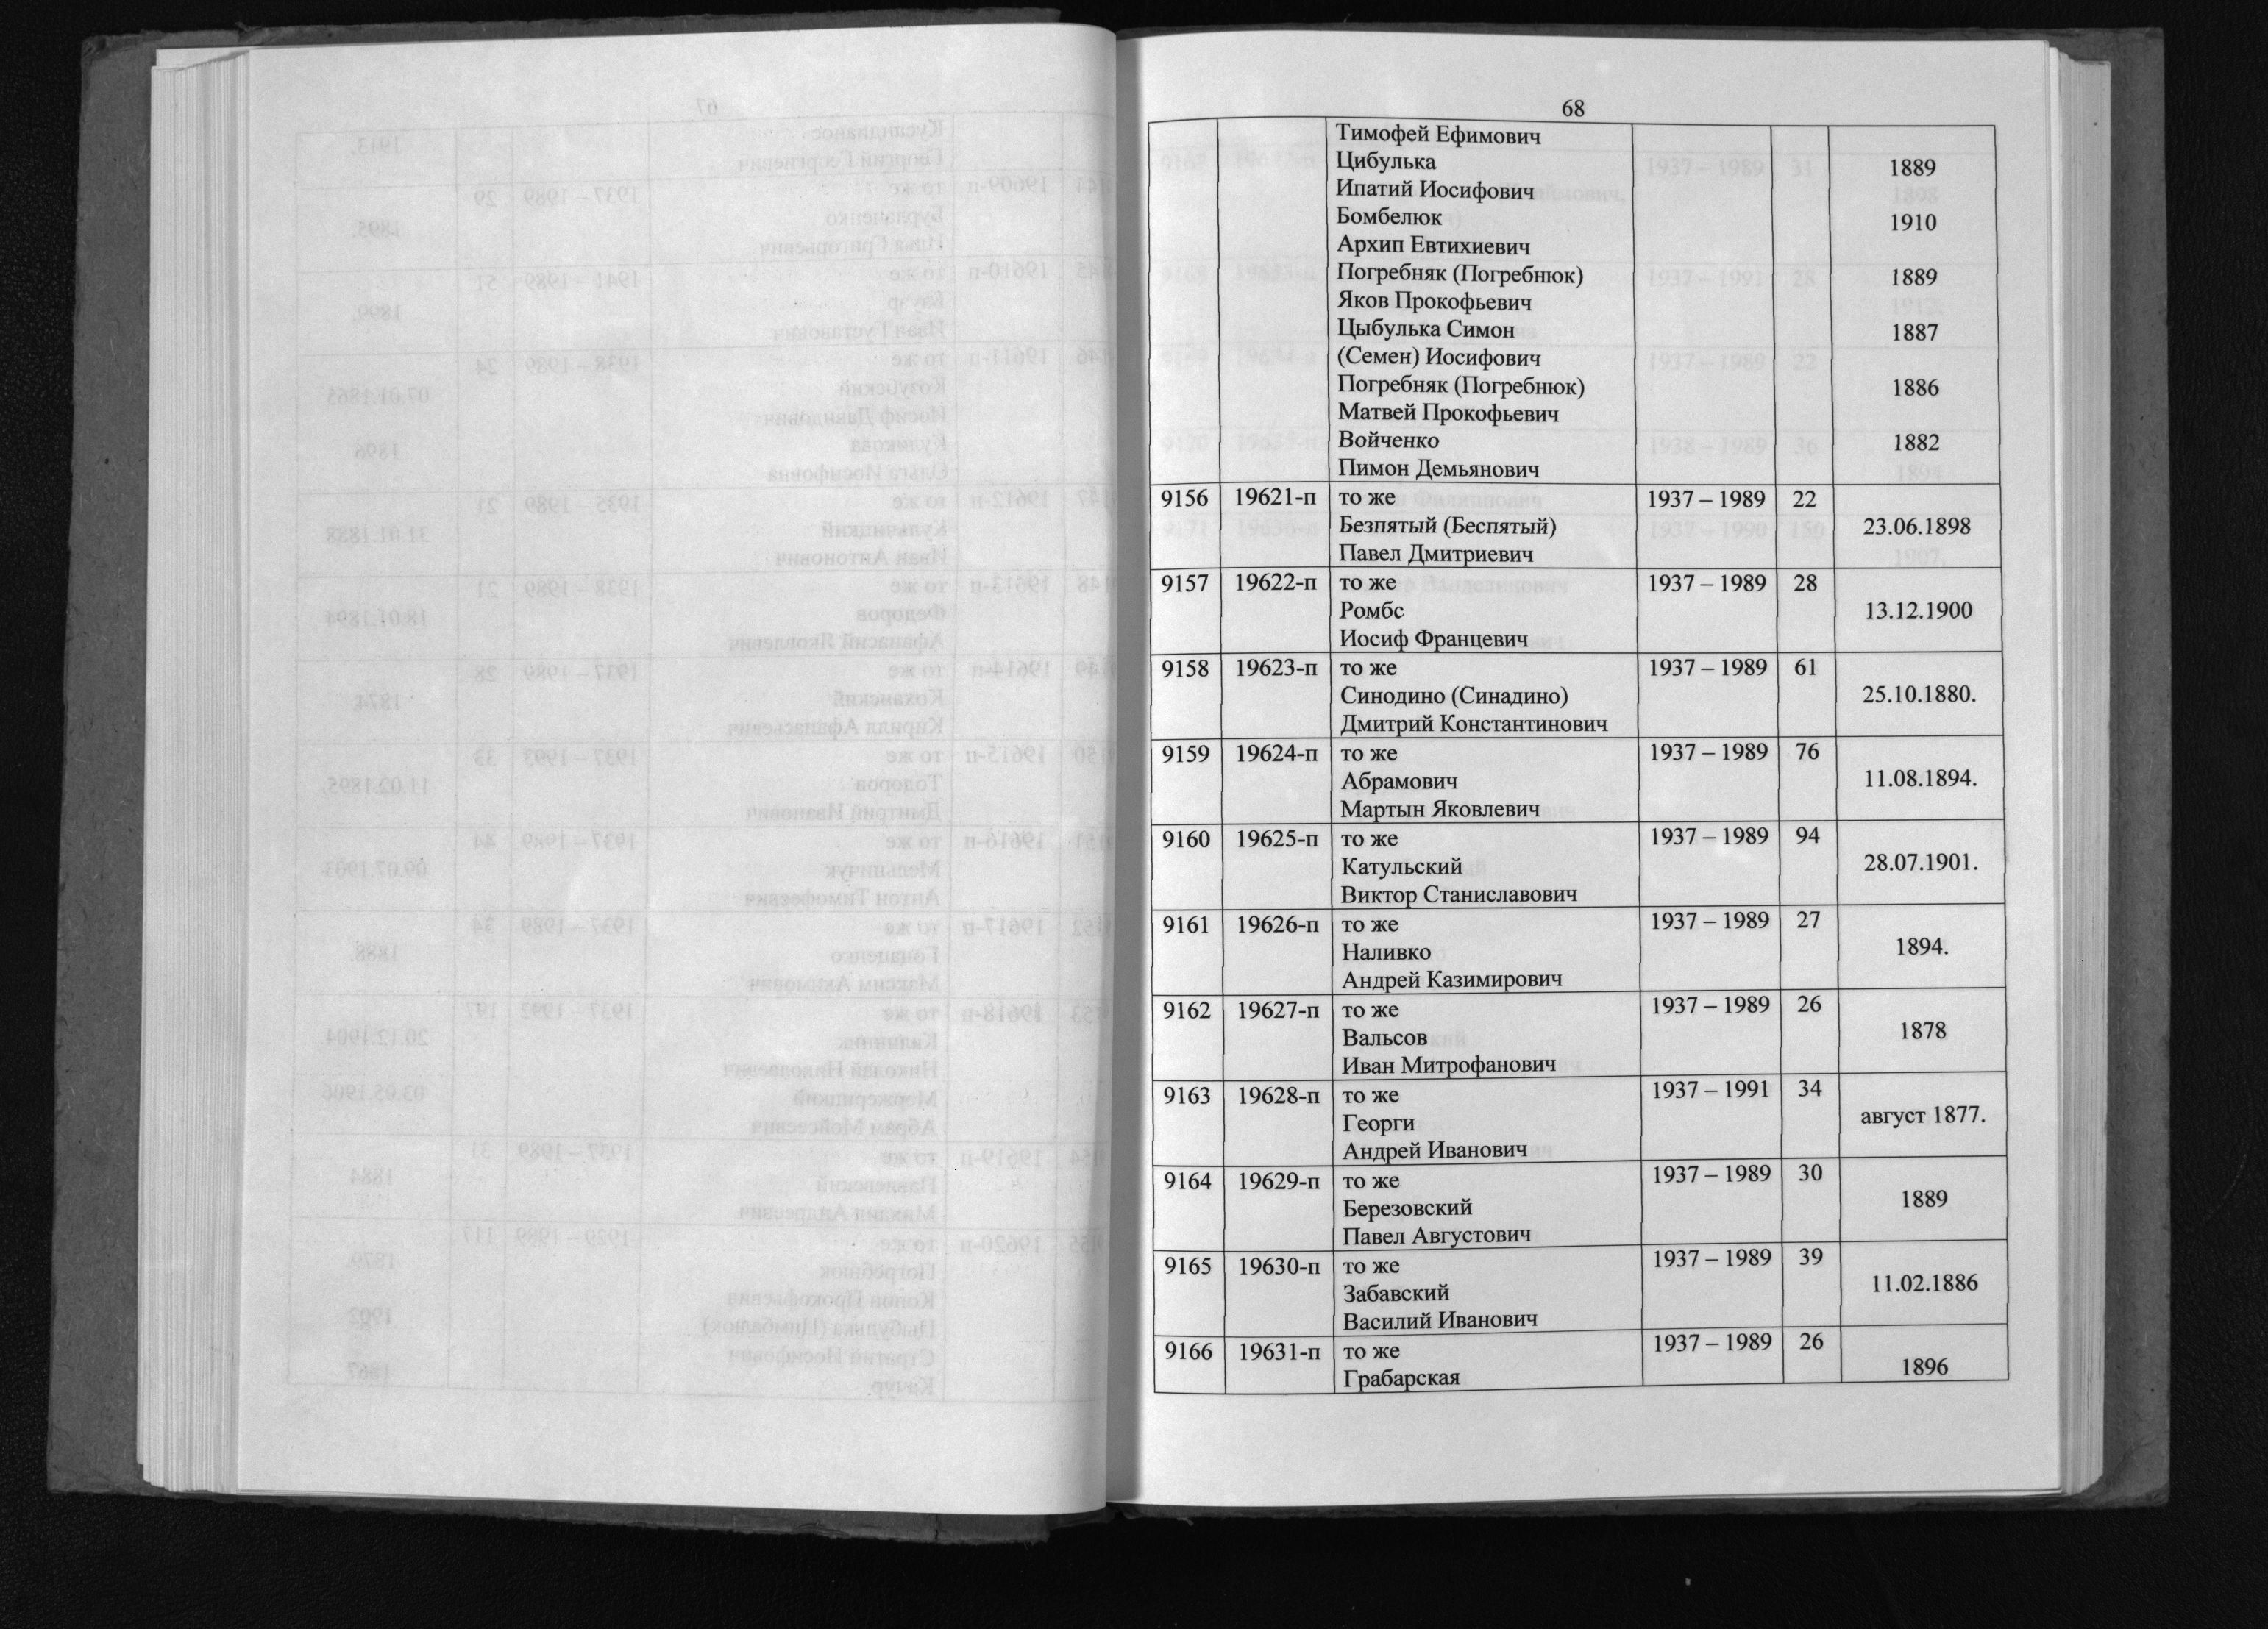 68
Тимофей Ефимович
Цибулька 1889
Ипатий Иосифович
Бомбелюк 1910
Архип Евтихиевич
Погребняк (Погребнюк) 1889
Яков Прокофьевич
Цыбулька Симон 1887
(Семен) Иосифович
Погребняк (Погребнюк) 1886
Матвей Прокофьевич
Войченко 1882
Пимон Демьянович
9156 19621-п то же 1937 – 1989 22
Безпятый (Беспятый) 23.06.1898
Павел Дмитриевич
9157 19622-п то же 1937 – 1989 28
Ромбс 13.12.1900
Иосиф Францевич
9158 19623-п то же 1937 – 1989 61
Синодино (Синадино) 25.10.1880.
Дмитрий Константинович
9159 19624-п то же 1937 – 1989 76
Абрамович 11.08.1894.
Мартын Яковлевич
9160 19625-п то же 1937 – 1989 94
Катульский 28.07.1901.
Виктор Станиславович
9161 19626-п то же 1937 – 1989 27
Наливко 1894.
Андрей Казимирович
9162 19627-п то же 1937 – 1989 26
Вальсов 1878
Иван Митрофанович
9163 19628-п то же 1937 – 1991 34
Георги август 1877.
Андрей Иванович
9164 19629-п то же 1937 – 1989 30
Березовский 1889
Павел Августович
9165 19630-п то же 1937 – 1989 39
Забавский 11.02.1886
Василий Иванович
9166 19631-п то же 1937 – 1989 26
Грабарская 1896